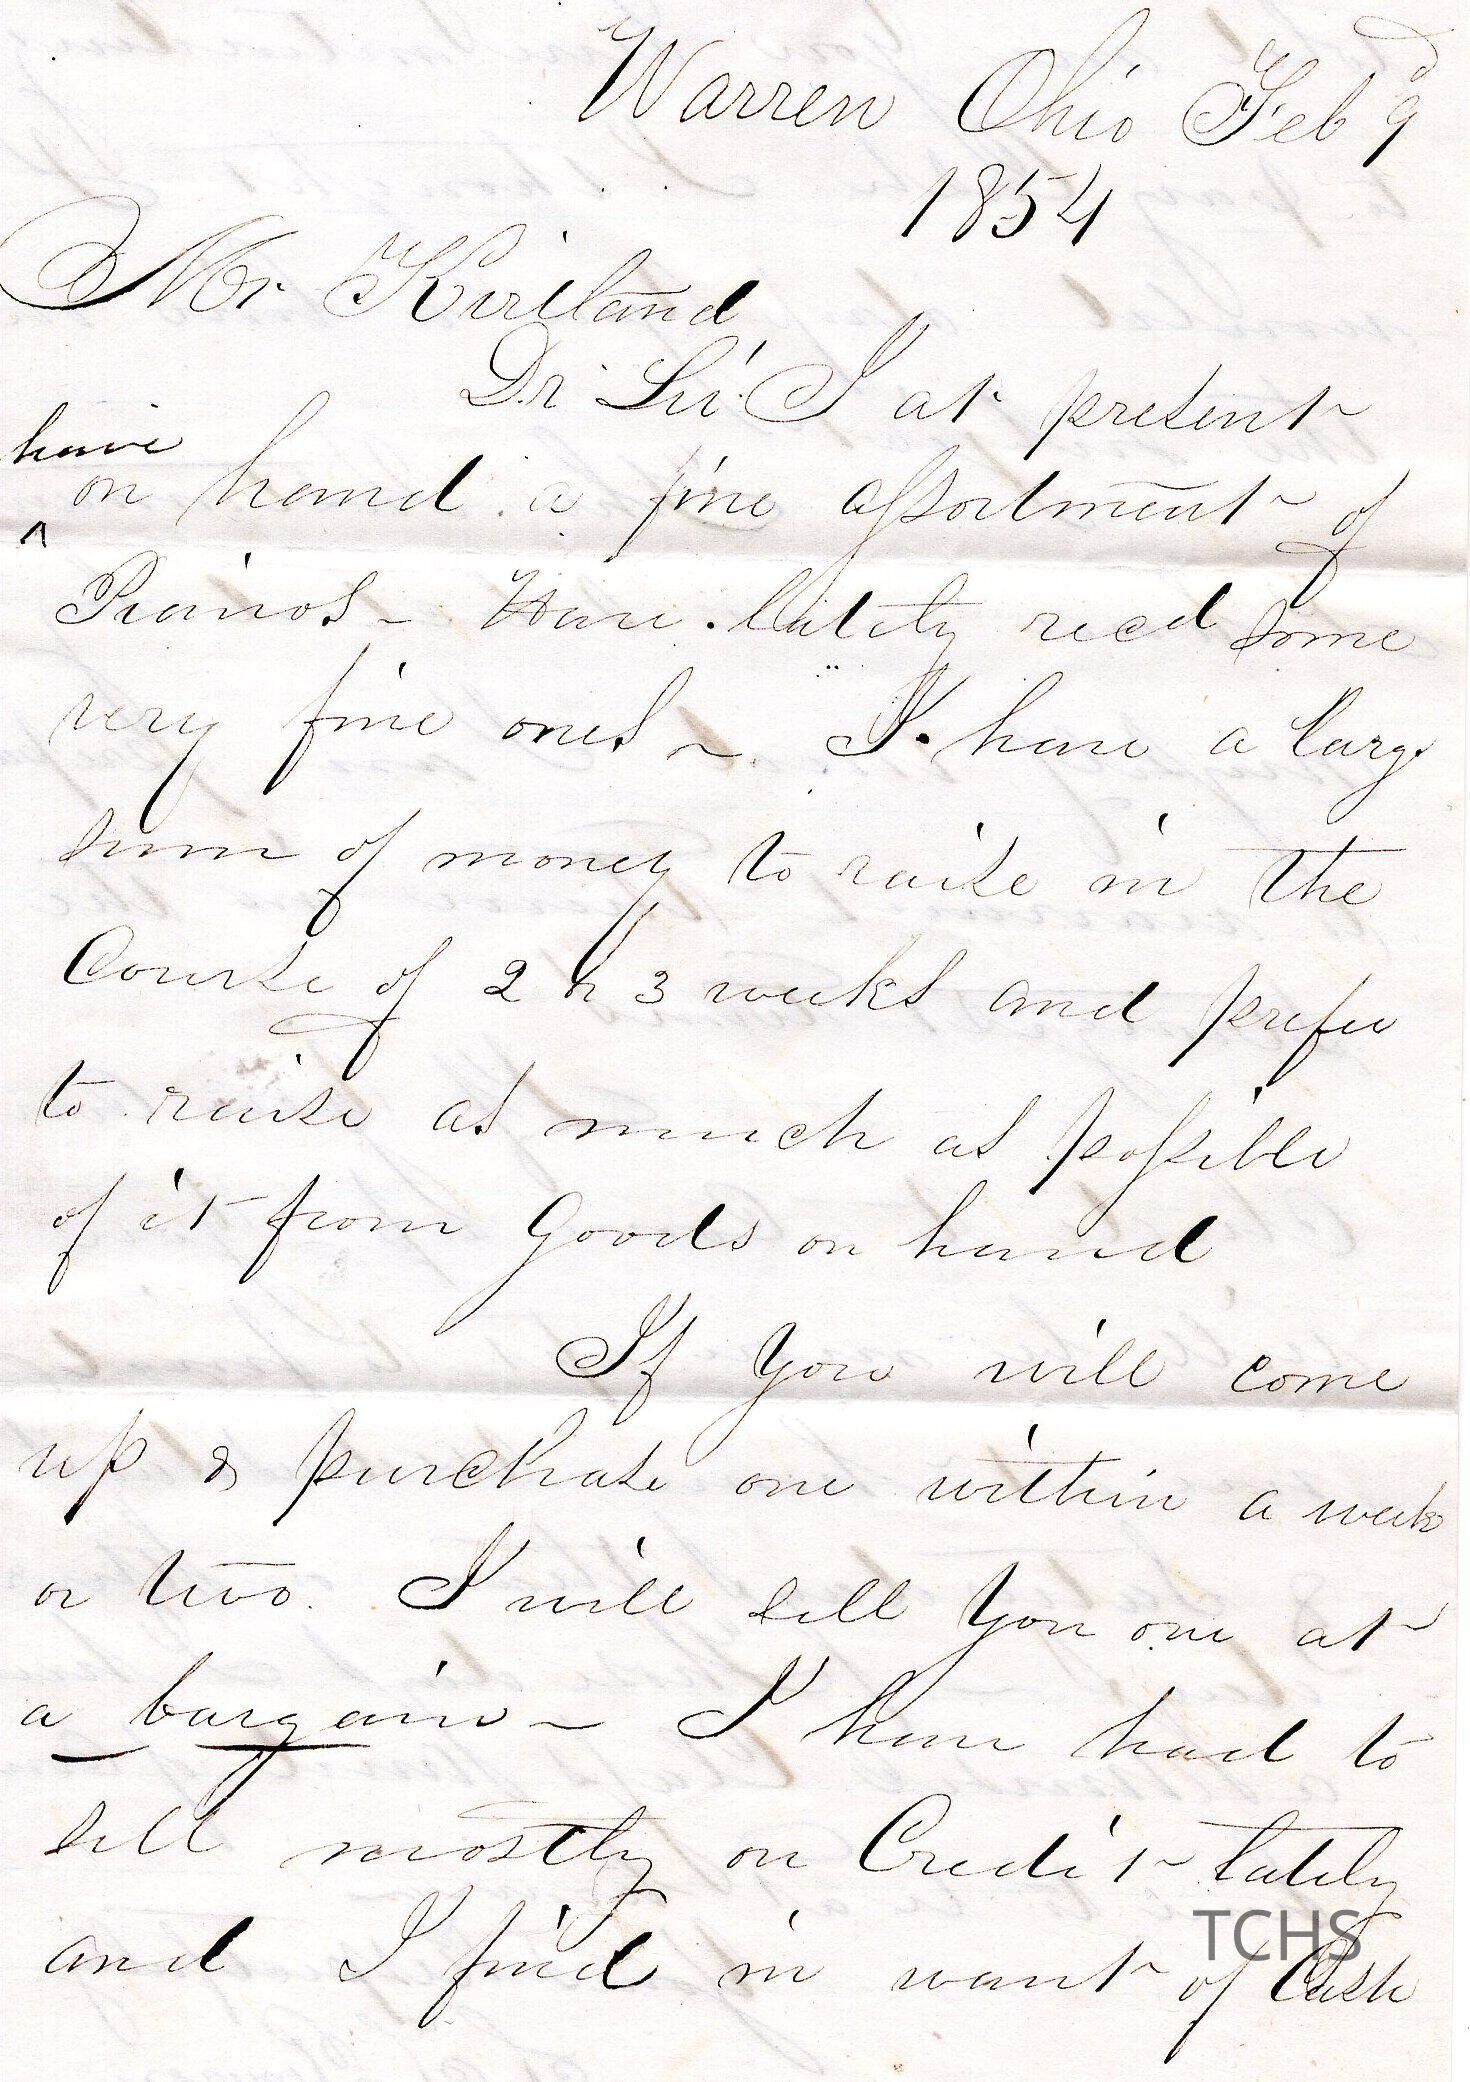 Warren Ohio Feb 9
1854
Mr Kirtland
Dr Sir I at present
have
on hand a fine assortment of
^
Pianos - Have lately recd some
very fine ones - I have a large
sum of money to raise in the
Course of 2 or 3 weeks and prefer
to raise as much as possible
of it from Goods on hand
If you will come
up & purchase one within a week
or two. I will sell you one at
a bargain - I have had to
sell mostly on Credit lately
and I find in want of Cash
TCHS